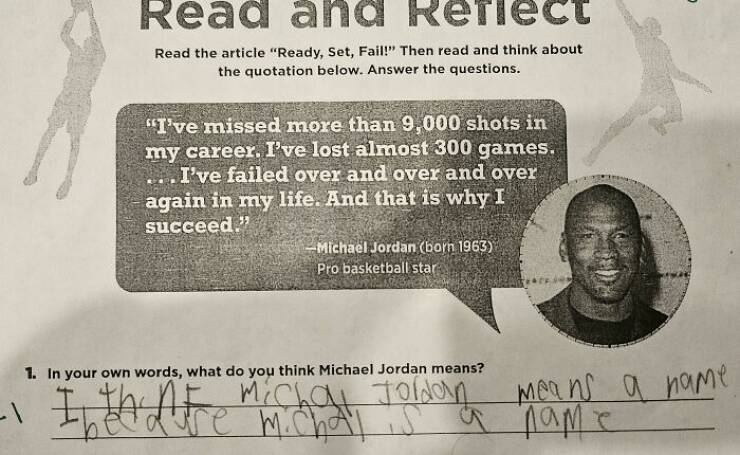 Read and Reflect
Read the article “Ready, Set, Fail!” Then read and think about
the quotation below. Answer the questions.
“I’ve missed more than 9,000 shots in
my career. I’ve lost almost 300 games.
. . . I’ve failed over and over and over
again in my life. And that is why I
succeed.”
—Michael Jordan (born 1963)
Pro basketball star
1. In your own words, what do you think Michael Jordan means?
I thinK Michal Jordan means a name
-1 because Michall is a name